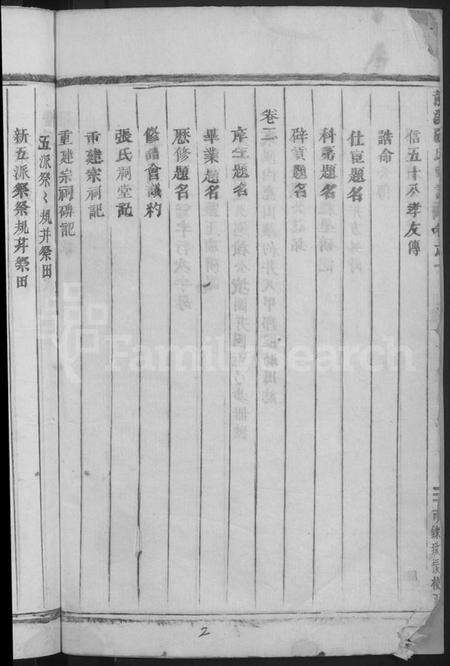 信五十八孝友傳
誥命
仕宦題名
科第題名
辟貢題名
卷二
庠生題名
畢業題名
歷修題名
修譜會議約
張氏祠堂記
重建宗祠記
重建宗祠碑記
五派祭々規并祭田
新五派祭祭規并祭田
2
FamilySearch